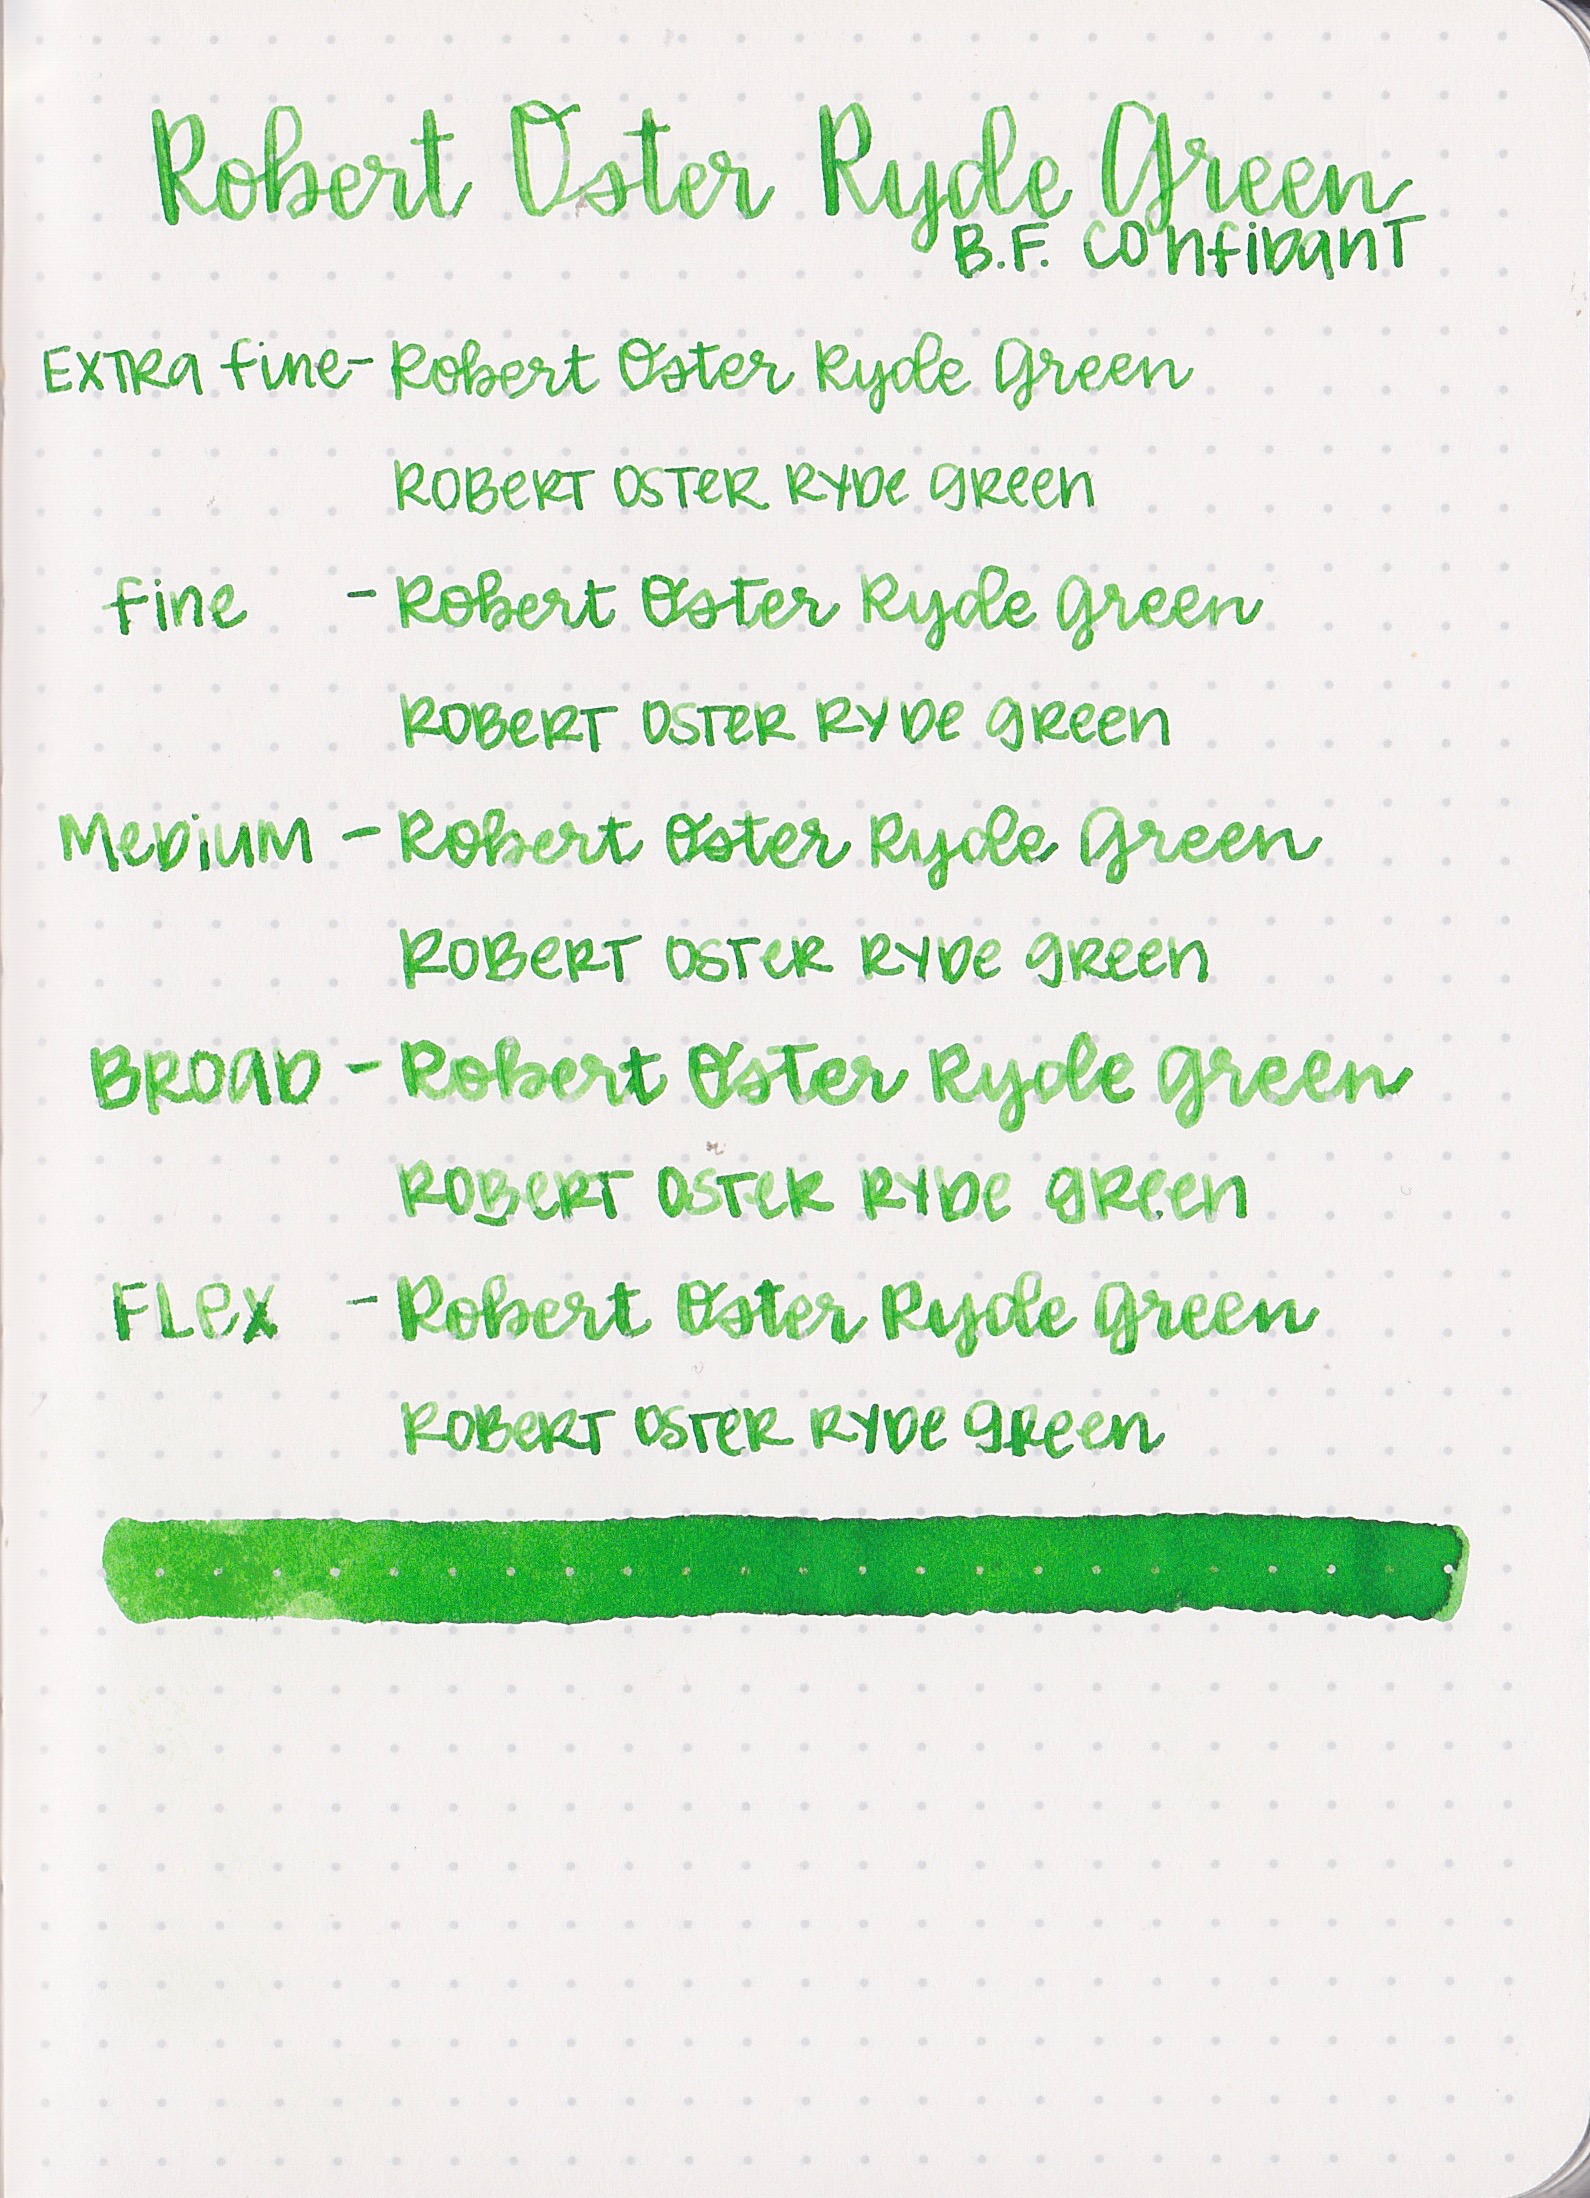 Robert Oster Ryde Green
B.F. Confidant
Extra fine - Robert Oster Ryde Green
Robert Oster Ryde Green
Fine - Robert Oster Ryde Green
Robert Oster Ryde Green
Medium - Robert Oster Ryde Green
Robert Oster Ryde Green
Broad - Robert Oster Ryde Green
Robert Oster Ryde Green
Flex - Robert Oster Ryde Green
Robert Oster Ryde Green